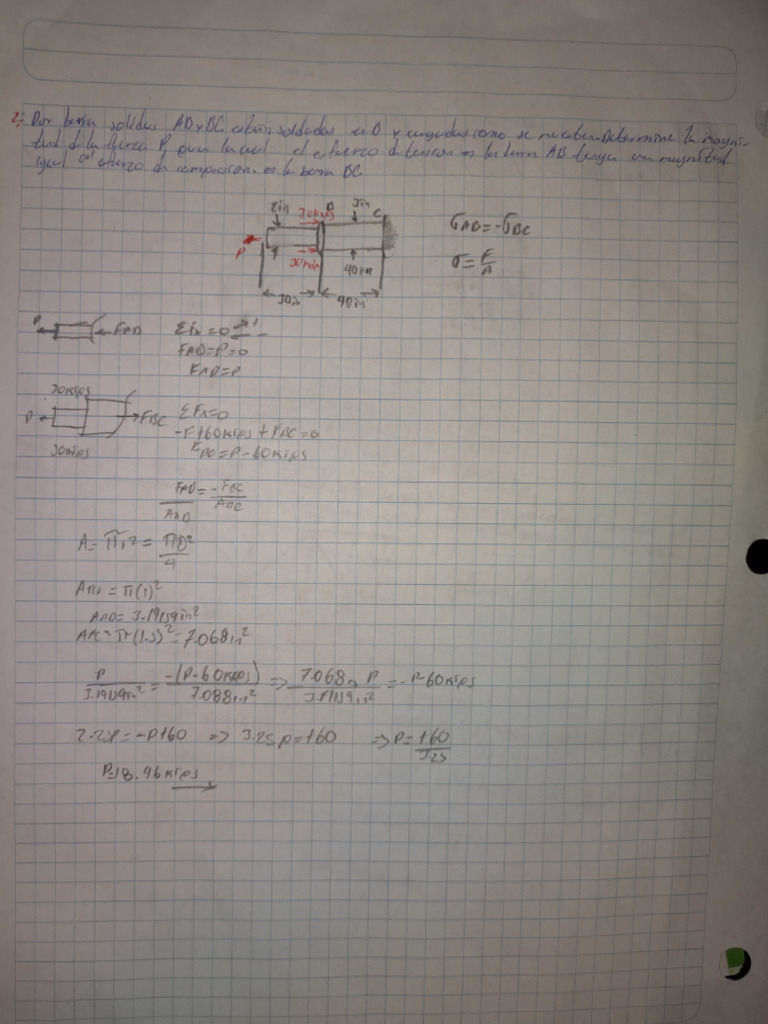 2: Dos barras solidas AD y BC estan soldadas en B y cargadas como se muestran. Determine la magni-
tud de la fuerza P para la cual el esfuerzo de tension en la barra AB tenga una magnitud
igual al esfuerzo de compresion en la barra BC.
2in 30kips B 3in C
P
30kips 40in
30in 40in
σAB=-σBC
σ=F/A
P FAB ΣFx=0
FAB=P=0
FAB=P
30kips
P FBC ΣFx=0
30kips
-P+60kips+FBC=0
FBC=P-60kips
FAB/AAB=-FBC/ABC
A=πr²=πD²/4
AAB=π(1)²
AAB=3.14159in²
ABC=π(1.5)²=7.068in²
P/3.14159in²=-(P-60kips)/7.088in² => 7.068in P/3.14159in²=-P-60kips
2.25P=-P+60 => 3.25P=+60 => P=+60/3.25
P=18.46kips